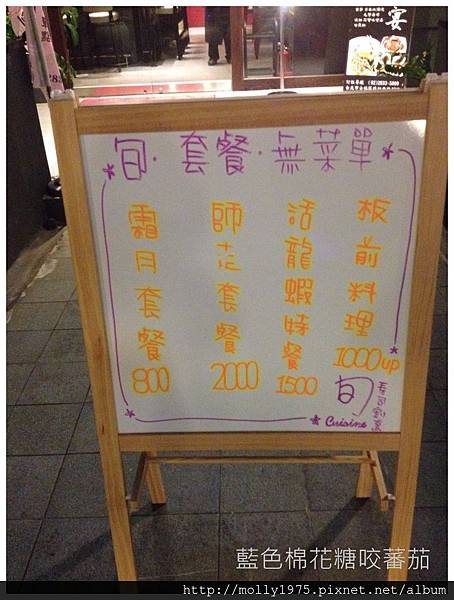 宴
(02)2833-5899
旬·套餐·無菜單
板前料理 1000up
活龍蝦特餐 1500
師花套餐 2000
霜月套餐 800
旬
Cuisine
藍色棉花糖咬蕃茄
http://molly1975.pixnet.net/album